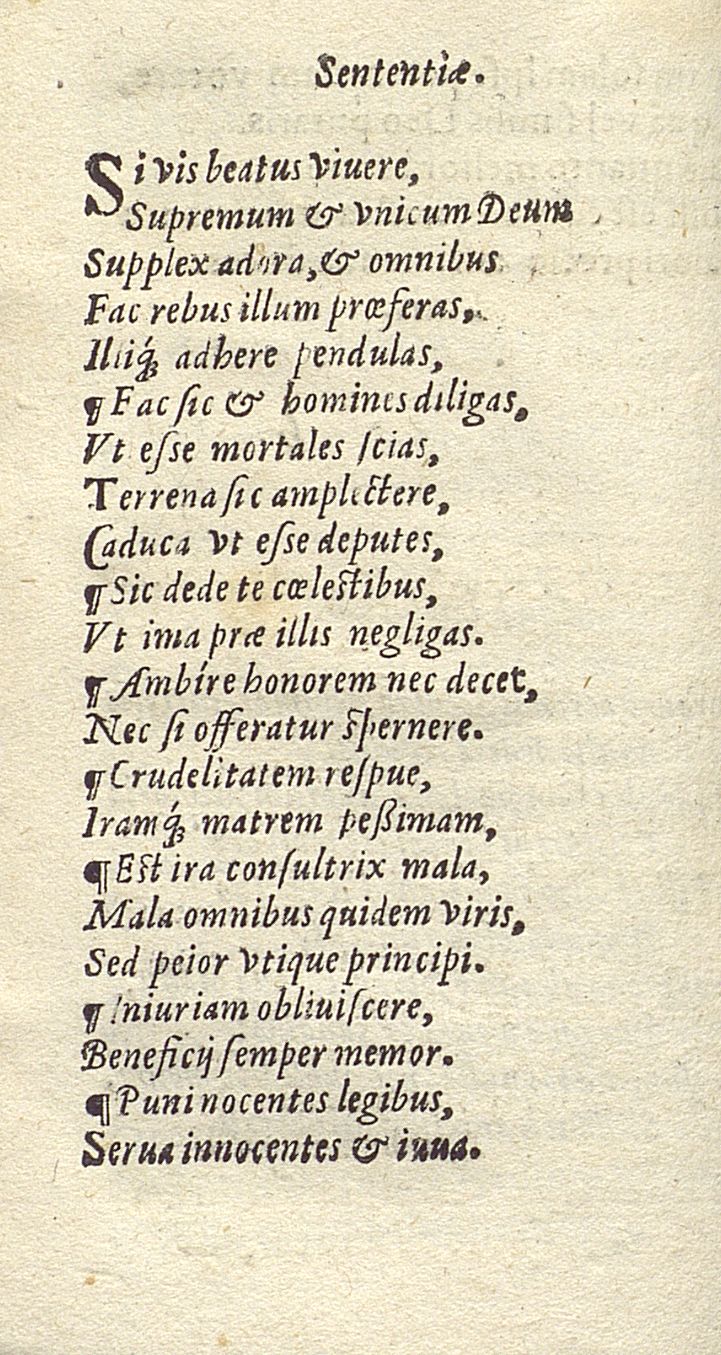 Sententiæ.
Si vis beatus viuere,
Supremum & vnicum Deum
Supplex adora, & omnibus
Fac rebus illum præferas,
Illiq́; adhere pendulas,
¶ Fac ſic & homines diligas,
Vt eſſe mortales ſcias,
Terrena ſic amplectere,
Caduca vt eſſe deputes,
¶ Sic dede te cœleſtibus,
Vt ima præ illis negligas.
¶ Ambíre honorem nec decet,
Nec ſi offeratur ſpernere.
¶ Crudelitatem reſpue,
Iramq́; matrem peßimam,
¶ Eſt ira conſultrix mala,
Mala omnibus quidem viris,
Sed peior vtique principi.
¶ Iniuriam obliuiſcere,
Beneficij ſemper memor.
¶ Puni nocentes legibus,
Serua innocentes & iuua.